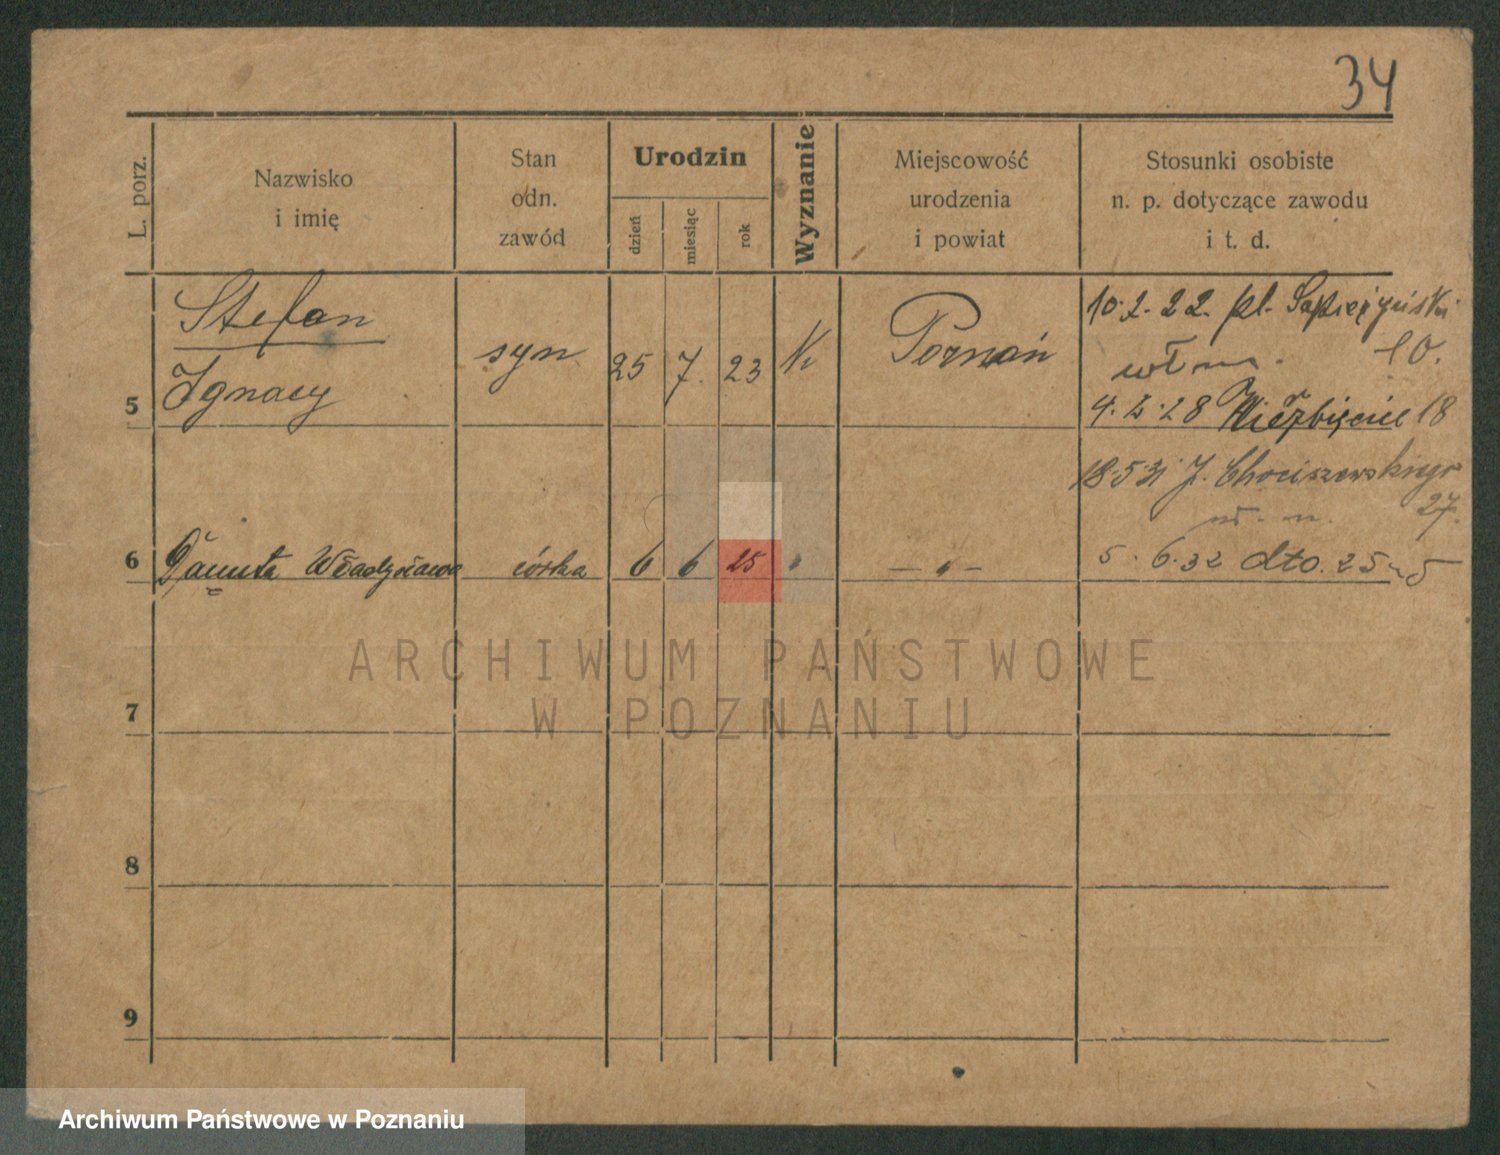 34
L. porz.
Nazwisko
i imię
Stan
odn.
zawód
Urodzin
dzień
miesiąc
rok
Wyznanie
Miejscowość
urodzenia
i powiat
Stosunki osobiste
n. p. dotyczące zawodu
i t. d.
5
Stefan
Ignacy
syn
25
7.
23
Poznań
10.2.22. pl. Sapieżyński
10.
4.2.28 Wierzbięcice 18
18.5.31 J. Chociszewskiego
27.
6
Danuta Władysława
córka
6
6
25
"
— " —
5.6.32 dto. 25
7
8
9
ARCHIWUM PAŃSTWOWE
W POZNANIU
Archiwum Państwowe w Poznaniu